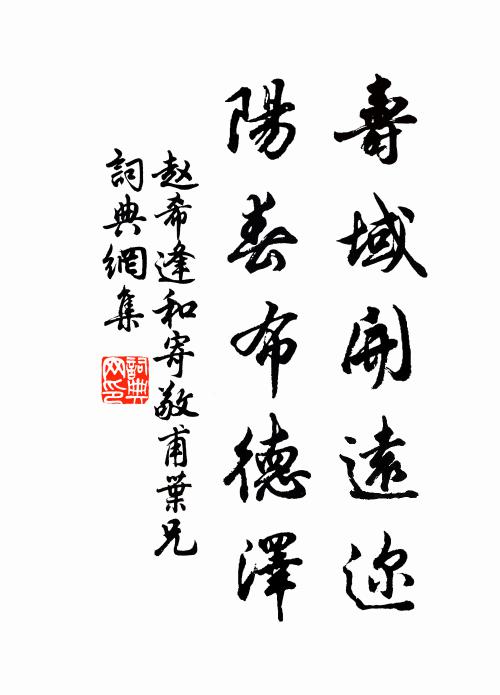 壽域開遠迩
陽春布德澤
赵希逢和寄敬甫葉兄
詞典網集
詞典网印